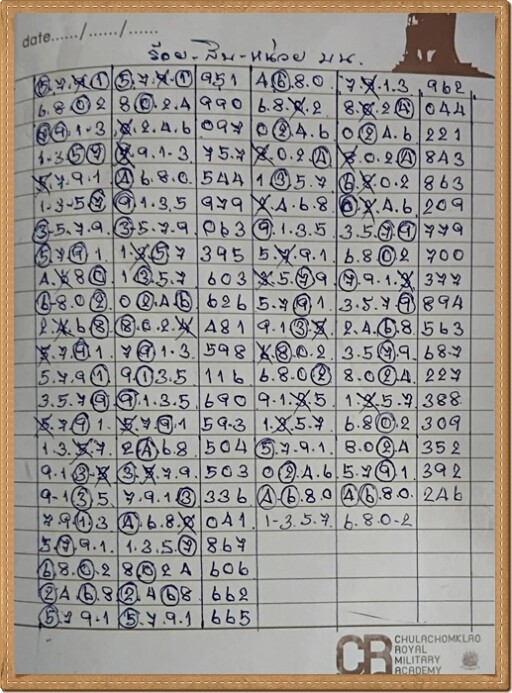 date....../....../......
ร้อย-สิบ-หน่วย บน.
5.7.9.1 5.7.9.1 951 4.6.8.0 7.9.1.3 962
6.8.0.2 8.0.2.4 990 6.8.0.2 8.0.2.4 044
7.9.1.3 0.2.4.6 097 0.2.4.6 0.2.4.6 221
1.3.5.7 7.9.1.3 757 8.0.2.4 8.0.2.4 843
5.7.9.1 4.6.8.0 544 1.3.5.7 6.8.0.2 863
1-3-5.7 9.1.3.5 979 2.4.6.8 0.2.4.6 209
3.5.7.9 3.5.7.9 063 9.1.3.5 3.5.7.9 779
5.7.9.1 1.3.5.7 395 5.7.9.1 6.8.0.2 700
4.6.8.0 1.3.5.7 603 3.5.7.9 7.9.1.3 377
6.8.0.2 0.2.4.6 626 5.7.9.1 3.5.7.9 894
2.4.6.8 8.0.2.4 481 9.1.3.5 2.4.6.8 563
5.7.9.1 7.9.1.3 598 6.8.0.2 3.5.7.9 687
5.7.9.1 9.1.3.5 116 6.8.0.2 8.0.2.4 227
3.5.7.9 9.1.3.5 690 9.1.3.5 1.3.5.7 388
5.7.9.1 5.7.9.1 593 1.3.5.7 6.8.0.2 309
1.3.5.7 2.4.6.8 504 5.7.9.1. 8.0.2.4 352
9.1.3.5 3.5.7.9. 503 0.2.4.6 5.7.9.1 392
9-1.3.5 7.9.1.3 336 4.6.8.0 4.6.8.0. 246
7.9.1.3 4.6.8.0 041 1-3.5.7 6.8.0-2
5.7.9.1 1.3.5.7 867
6.8.0.2 8.0.2.4 606
2.4.6.8 2.4.6.8 662
5.7.9.1 5.7.9.1 665
CR
CHULACHOMKLAO
ROYAL
MILITARY
ACADEMY